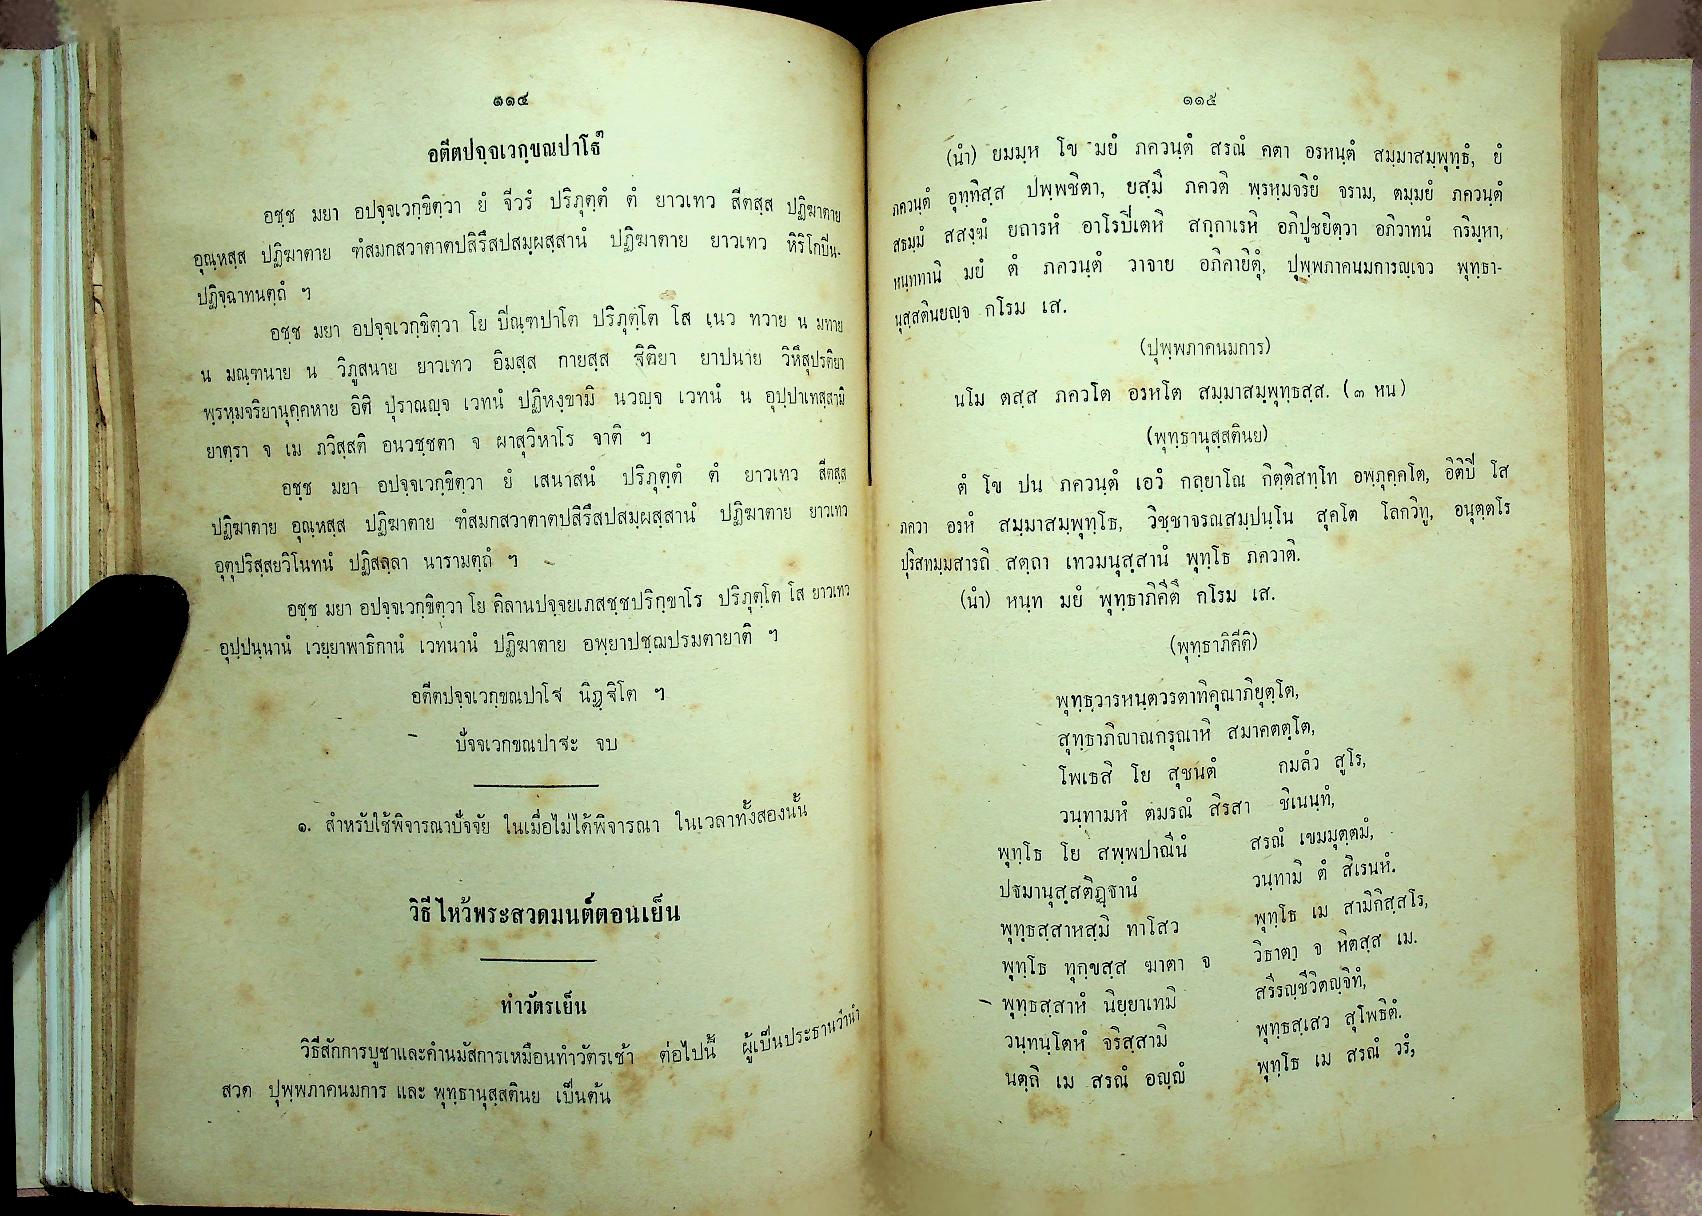 ๑๑๔
อตีตปจฺจเวกฺขณปาโฐ๊
อชฺช มยา อปจฺจเวกฺขิตฺวา ยํ จีวรํ ปริภุตฺตํ ตํ ยาวเทว สีตสฺส ปฏิฆาตาย
อุณฺหสฺส ปฏิฆาตาย ฑํสมกสวาตาตปสิรึสปสมฺผสฺสานํ ปฏิฆาตาย ยาวเทว หิริโกปีน-
ปฏิจฺฉาทนตฺถํ ฯ
อชฺช มยา อปจฺจเวกฺขิตฺวา โย ปิณฺฑปาโต ปริภุตฺโต โส เนว ทวาย น มทาย
น มณฺฑนาย น วิภูสนาย ยาวเทว อิมสฺส กายสฺส ฐิติยา ยาปนาย วิหึสุปรติยา
พฺรหฺมจริยานุคฺคหาย อิติ ปุราณญฺจ เวทนํ ปฏิหงฺขามิ นวญฺจ เวทนํ น อุปฺปาเทสฺสามิ
ยาตฺรา จ เม ภวิสฺสติ อนวชฺชตา จ ผาสุวิหาโร จาติ ฯ
อชฺช มยา อปจฺจเวกฺขิตฺวา ยํ เสนาสนํ ปริภุตฺตํ ตํ ยาวเทว สีตสฺส
ปฏิฆาตาย อุณฺหสฺส ปฏิฆาตาย ฑํสมกสวาตาตปสิรึสปสมฺผสฺสานํ ปฏิฆาตาย ยาวเทว
อุตุปริสฺสยวิโนทนํ ปฏิสลฺลา นารามตฺถํ ฯ
อชฺช มยา อปจฺจเวกฺขิตฺวา โย คิลานปจฺจยเภสชฺชปริกฺขาโร ปริภุตฺโต โส ยาวเทว
อุปฺปนฺนานํ เวยฺยาพาธิกานํ เวทนานํ ปฏิฆาตาย อพฺยาปชฺฌปรมตายาติ ฯ
อตีตปจฺจเวกฺขณปาโฐ นิฏฺฐิโต ฯ
ปัจจเวกขณปาฐะ จบ
๑. สำหรับใช้พิจารณาปัจจัย ในเมื่อไม่ได้พิจารณา ในเวลาทั้งสองนั้น
วิธีไหว้พระสวดมนต์ตอนเย็น
ทำวัตรเย็น
วิธีสักการบูชาและคำนมัสการเหมือนทำวัตรเช้า ต่อไปนี้ ผู้เป็นประธานว่านำ
สวด ปุพฺพภาคนมการ และ พุทฺธานุสฺสตินย เป็นต้น
๑๑๕
(นำ) ยมมฺห โข มยํ ภควนฺตํ สรณํ คตา อรหนฺตํ สมฺมาสมฺพุทฺธํ, ยํ
ภควนฺตํ อุทฺทิสฺส ปพฺพชิตา, ยสฺมึ ภควติ พฺรหฺมจริยํ จราม, ตมฺมยํ ภควนฺตํ
สธมฺมํ สสงฺฆํ ยถารหํ อาโรปิเตหิ สกฺกาเรหิ อภิปูชยิตฺวา อภิวาทนํ กริมฺหา,
หนฺททานิ มยํ ตํ ภควนฺตํ วาจาย อภิคายิตุํ, ปุพฺพภาคนมการญฺเจว พุทฺธา-
นุสฺสตินยญฺจ กโรม เส.
(ปุพฺพภาคนมการ)
นโม ตสฺส ภควโต อรหโต สมฺมาสมฺพุทฺธสฺส. (๓ หน)
(พุทฺธานุสฺสตินย)
ตํ โข ปน ภควนฺตํ เอวํ กลฺยาโณ กิตฺติสทฺโท อพฺภุคฺคโต, อิติปิ โส
ภควา อรหํ สมฺมาสมฺพุทฺโธ, วิชฺชาจรณสมฺปนฺโน สุคโต โลกวิทู, อนุตฺตโร
ปุริสทมฺมสารถิ สตฺถา เทวมนุสฺสานํ พุทฺโธ ภควาติ.
(นำ) หนฺท มยํ พุทฺธาภิคีตึ กโรม เส.
(พุทฺธาภิคีติ)
พุทฺธฺวารหนฺตวรตาทิคุณาภิยุตฺโต,
สุทฺธาภิญาณกรุณาหิ สมาคตตฺโต,
โพเธสิ โย สุชนตํ กมลํว สูโร,
วนฺทามหํ ตมรณํ สิรสา ชิเนนฺทํ,
พุทฺโธ โย สพฺพปาณีนํ สรณํ เขมมุตฺตมํ,
ปฐมานุสฺสติฏฺฐานํ วนฺทามิ ตํ สิเรนหํ.
พุทฺธสฺสาหสฺมิ ทาโสว พุทฺโธ เม สามิกิสฺสโร,
พุทฺโธ ทุกฺขสฺส ฆาตา จ วิธาตา จ หิตสฺส เม.
พุทฺธสฺสาหํ นิยฺยาเทมิ สรีรญฺชีวิตญฺจิทํ,
วนฺทนฺโตหํ จริสฺสามิ พุทฺธสฺเสว สุโพธิตํ.
นตฺถิ เม สรณํ อญฺญํ พุทฺโธ เม สรณํ วรํ,